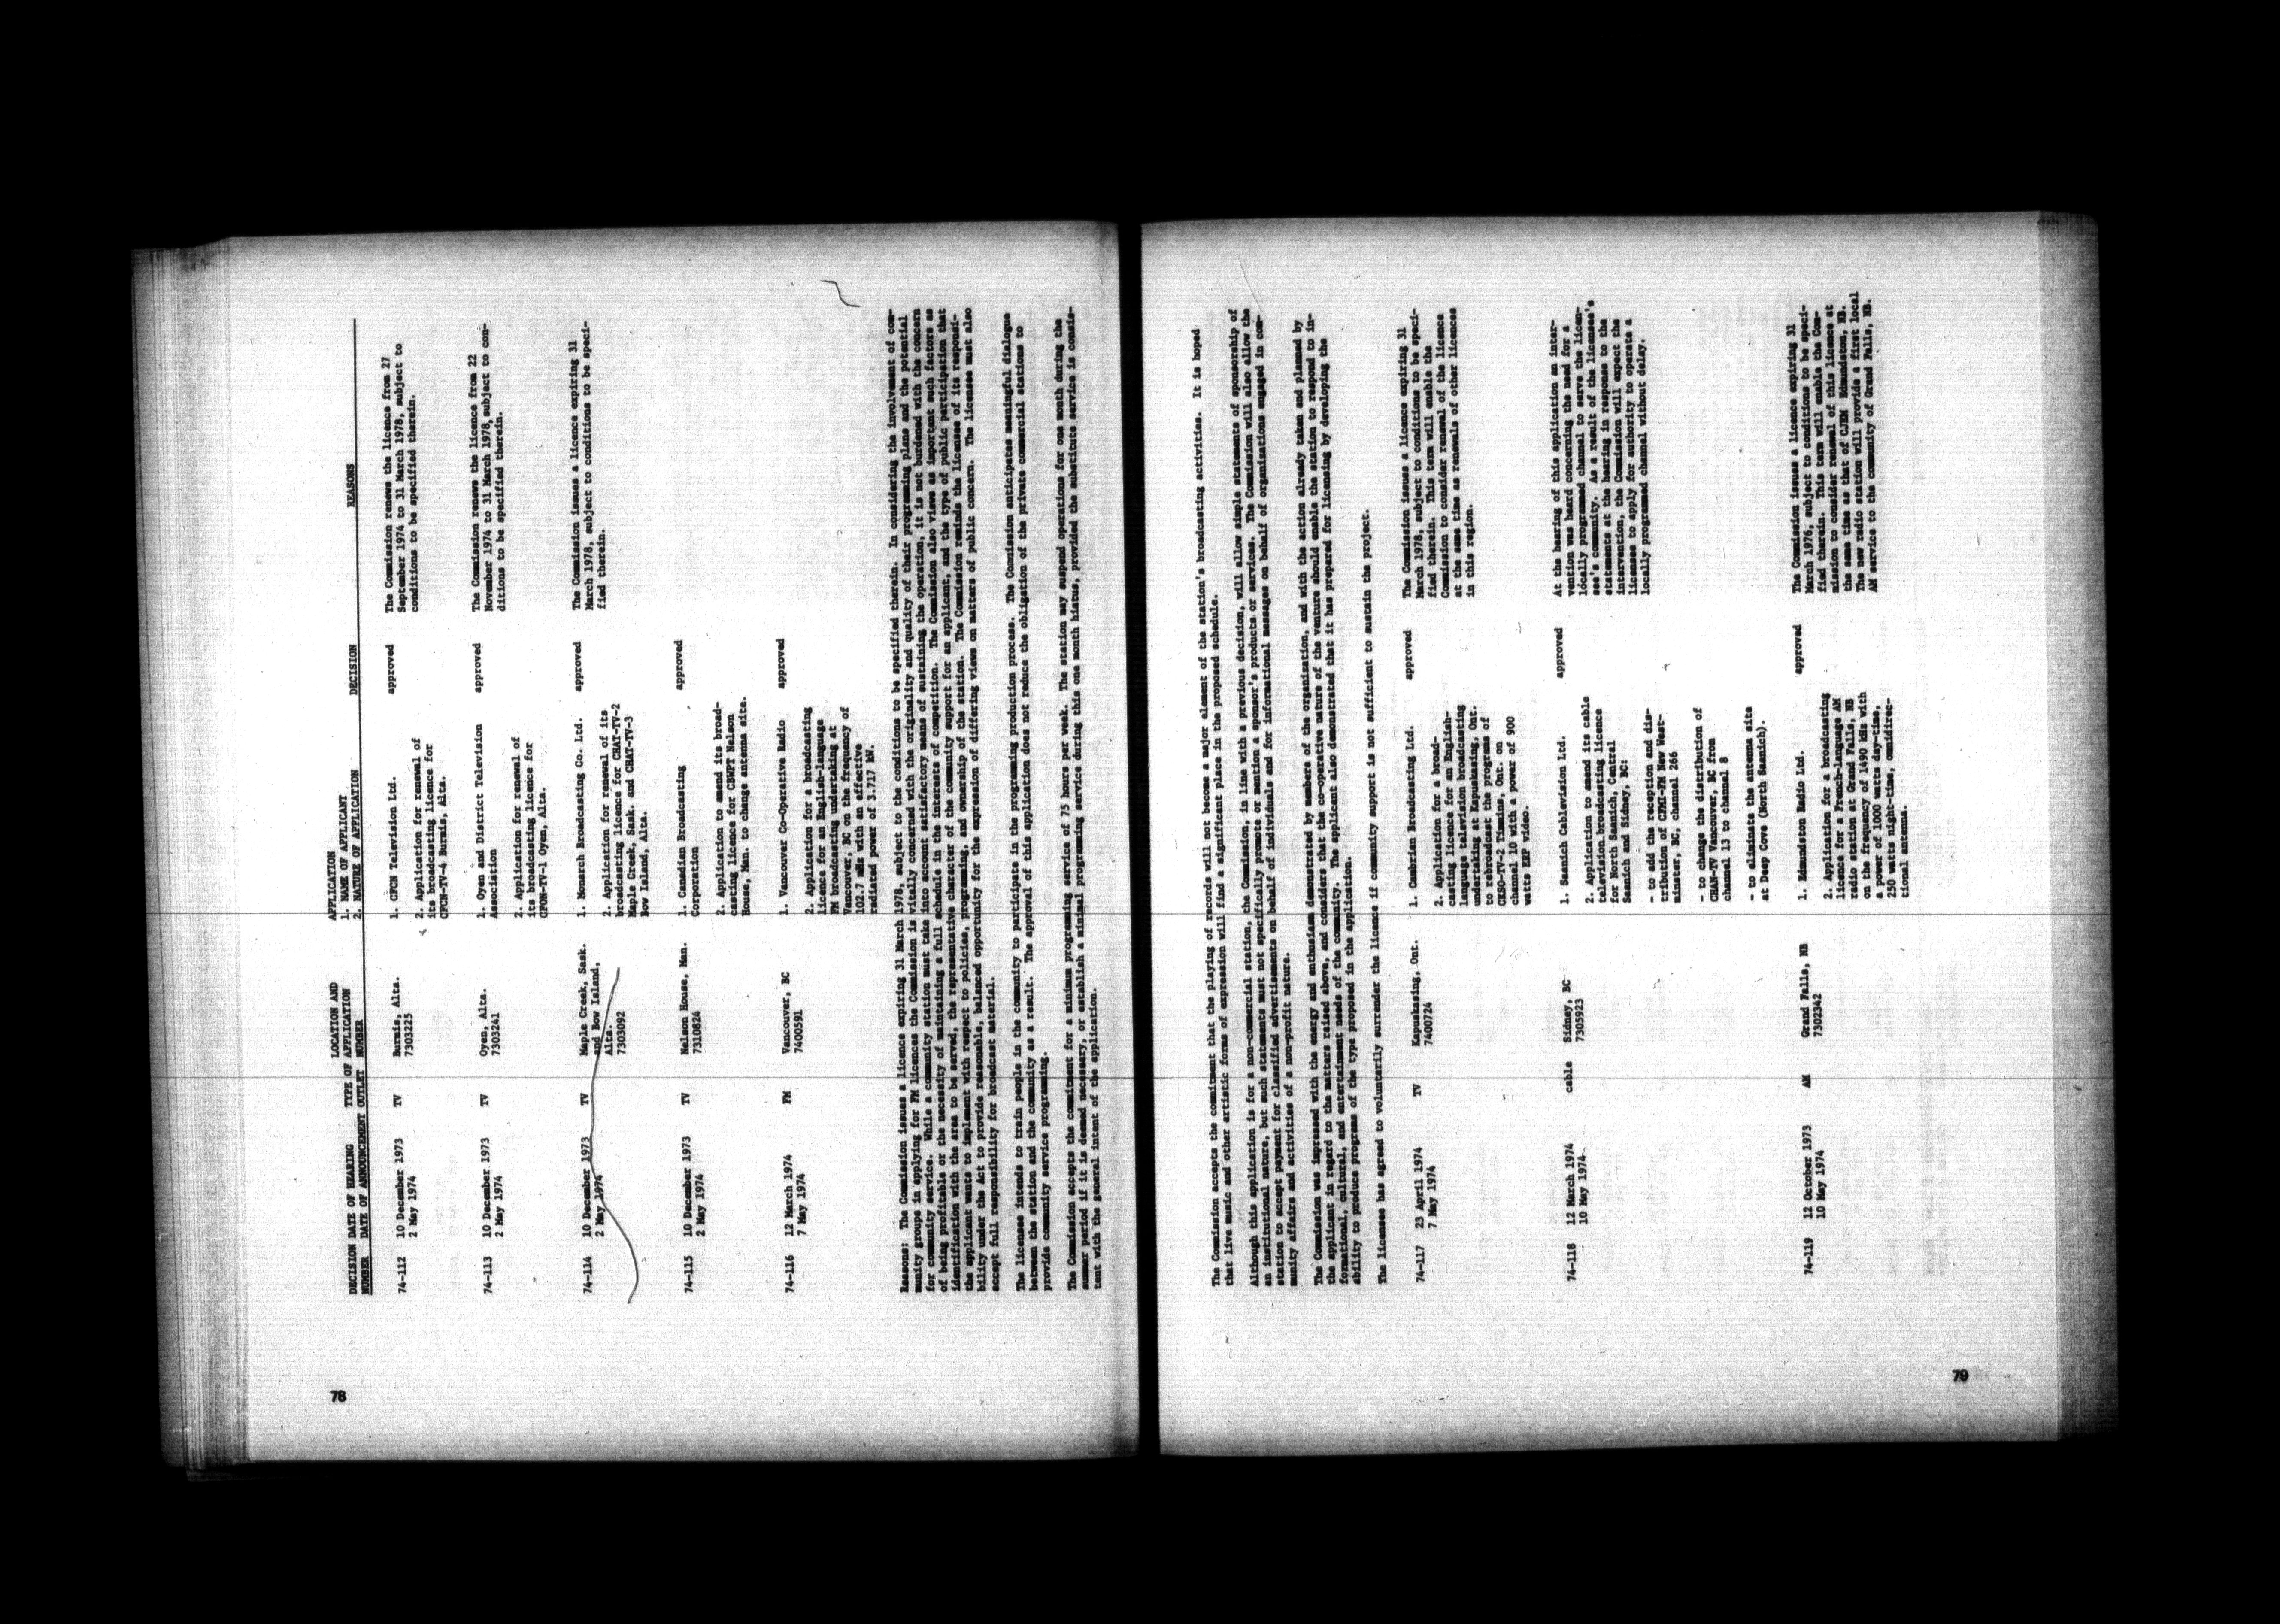 DECISION DATE OF HEARING TYPE OF LOCATION AND APPLICATION APPLICATION DECISION REASONS
NUMBER DATE OF ANNOUNCEMENT OUTLET NUMBER 1. NAME OF APPLICANT
2. NATURE OF APPLICATION
74-112 10 December 1973 TV Burmis, Alta. 1. CFCN Television Ltd. approved The Commission renews the licence from 27
2 May 1974 7303225 September 1974 to 31 March 1978, subject to
conditions to be specified therein.
2. Application for renewal of
its broadcasting licence for
CFCN-TV-4 Burmis, Alta.
74-113 10 December 1973 TV Oyen, Alta. 1. Oyen and District Television approved The Commission renews the licence from 22
2 May 1974 7303241 Association November 1974 to 31 March 1978, subject to con-
ditions to be specified therein.
2. Application for renewal of
its broadcasting licence for
CFON-TV-1 Oyen, Alta.
74-114 10 December 1973 TV Maple Creek, Sask. 1. Monarch Broadcasting Co. Ltd. approved The Commission issues a licence expiring 31
2 May 1974 and Bow Island, March 1978, subject to conditions to be speci-
Alta. fied therein.
7303092
2. Application for renewal of its
broadcasting licence for CHAT-TV-2
Maple Creek, Sask. and CHAT-TV-3
Bow Island, Alta.
74-115 10 December 1973 TV Nelson House, Man. 1. Canadian Broadcasting approved
2 May 1974 7310824 Corporation
2. Application to amend its broad-
casting licence for CBWPT Nelson
House, Man. to change antenna site.
74-116 12 March 1974 FM Vancouver, BC 1. Vancouver Co-Operative Radio approved
7 May 1974 7400591
2. Application for a broadcasting
licence for an English-language
FM broadcasting undertaking at
Vancouver, BC on the frequency of
102.7 mHz with an effective
radiated power of 3.717 kW.
Reasons: The Commission issues a licence expiring 31 March 1978, subject to the conditions to be specified therein. In considering the involvement of com-
munity groups in applying for FM licences the Commission is vitally concerned with the originality and quality of their programming plans and the potential
for community service. While a community station must take into account satisfactory means of sustaining the operation, it is not burdened with the concern
of being profitable or the necessity of maintaining a full schedule in the interests of competition. The Commission also views as important such factors as
identification with the area to be served, the representative character of the community support for an applicant, and the type of public participation that
the applicant wants to implement with respect to policies, programming, and ownership of the station. The Commission reminds the licensee of its responsi-
bility under the Act to provide reasonable, balanced opportunity for the expression of differing views on matters of public concern. The licensee must also
accept full responsibility for broadcast material.
The licensee intends to train people in the community to participate in the programming production process. The Commission anticipates meaningful dialogue
between the station and the community as a result. The approval of this application does not reduce the obligation of the private commercial stations to
provide community service programming.
The Commission accepts the commitment for a minimum programming service of 75 hours per week. The station may suspend operations for one month during the
summer period if it is deemed necessary, or establish a minimal programming service during this one month hiatus, provided the substitute service is consis-
tent with the general intent of the application.
78
The Commission accepts the commitment that the playing of records will not become a major element of the station's broadcasting activities. It is hoped
that live music and other artistic forms of expression will find a significant place in the proposed schedule.
Although this application is for a non-commercial station, the Commission, in line with a previous decision, will allow simple statements of sponsorship of
an institutional nature, but such statements must not specifically promote or mention a sponsor's products or services. The Commission will also allow the
station to accept payment for classified advertisements on behalf of individuals and for informational messages on behalf of organizations engaged in com-
munity affairs and activities of a non-profit nature.
The Commission was impressed with the energy and enthusiasm demonstrated by members of the organization, and with the action already taken and planned by
the applicant in regard to the matters raised above, and considers that the co-operative nature of the venture should enable the station to respond to in-
formational, cultural, and entertainment needs of the community. The applicant also demonstrated that it has prepared for licensing by developing the
ability to produce programs of the type proposed in the application.
The licensee has agreed to voluntarily surrender the licence if community support is not sufficient to sustain the project.
74-117 23 April 1974 TV Kapuskasing, Ont. 1. Cambrian Broadcasting Ltd. approved The Commission issues a licence expiring 31
7 May 1974 7400724 March 1978, subject to conditions to be speci-
fied therein. This term will enable the
Commission to consider renewal of the licence
at the same time as renewals of other licences
in this region.
2. Application for a broad-
casting licence for an English-
language television broadcasting
undertaking at Kapuskasing, Ont.
to rebroadcast the programs of
CKSO-TV-2 Timmins, Ont. on
channel 10 with a power of 900
watts ERP video.
74-118 12 March 1974 cable Sidney, BC 1. Saanich Cablevision Ltd. approved At the hearing of this application an inter-
10 May 1974 7305923 vention was heard concerning the need for a
locally programmed channel to serve the licen-
see's community. As a result of the licensee's
statements at the hearing in response to the
intervention, the Commission will expect the
licensee to apply for authority to operate a
locally programmed channel without delay.
2. Application to amend its cable
television broadcasting licence
for North Saanich, Central
Saanich and Sidney, BC:
- to add the reception and dis-
tribution of CFMI-FM New West-
minster, BC, channel 266
- to change the distribution of
CHAN-TV Vancouver, BC from
channel 13 to channel 8
- to eliminate the antenna site
at Deep Cove (North Saanich).
74-119 12 October 1973 AM Grand Falls, NB 1. Edmundston Radio Ltd. approved The Commission issues a licence expiring 31
10 May 1974 7302342 March 1976, subject to conditions to be speci-
fied therein. This term will enable the Com-
mission to consider renewal of this licence at
the same time as that of CJEM Edmundston, NB.
The new radio station will provide a first local
AM service to the community of Grand Falls, NB.
2. Application for a broadcasting
licence for a French-language AM
radio station at Grand Falls, NB
on the frequency of 1490 kHz with
a power of 1000 watts day-time,
250 watts night-time, omnidirec-
tional antenna.
79